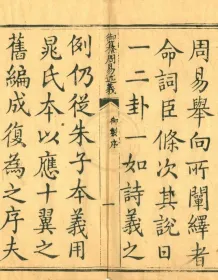 周易舉向所闡繹者
命詞臣條次其說日
一二卦一如詩義之
御纂周易述義
御製序
一
例仍從朱子本義用
晁氏本以應十翼之
舊編成復為之序夫